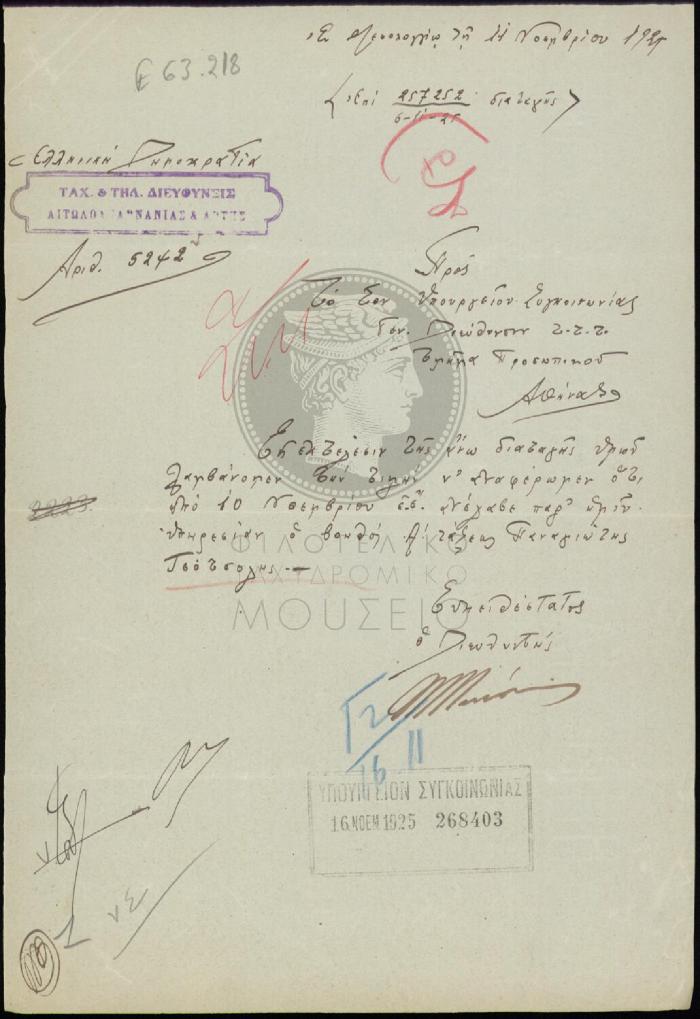 Ε 63.218
Ἐν Μεσολογγίῳ τῇ 11 Νοεμβρίου 1925
(Ἐπί 257252 διαταγῆς)
6-11-25
Ἑλληνική Δημοκρατία
ΤΑΧ. & ΤΗΛ. ΔΙΕΥΘΥΝΣΙΣ
ΑΙΤΩΛΟΑΚΑΡΝΑΝΙΑΣ & ΑΡΤΗΣ
Ἀριθ. 5242
Πρός
Τό Σον Ὑπουργεῖον Συγκοινωνίας
Γεν. Διεύθυνσιν Τ.Τ.Τ.
Τμῆμα Προσωπικοῦ
Ἀθήνας
Εἰς ἐκτέλεσιν τῆς ἄνω διαταγῆς ὑμῶν
λαμβάνομεν τήν τιμήν ν' ἀναφέρωμεν ὅτι
ἀπό 10 Νοεμβρίου ἀνέλαβε παρ' ἡμῖν
ὑπηρεσίαν ὁ βοηθός Αʹ τάξεως Παναγιώτης
Τσότσολης.—
Εὐπειθέστατος
ὁ Διευθυντής
ΦΙΛΟΤΕΛΙΚΟ
ΤΑΧΥΔΡΟΜΙΚΟ
ΜΟΥΣΕΙΟ
16/11
ΥΠΟΥΡΓΕΙΟΝ ΣΥΓΚΟΙΝΩΝΙΑΣ
16 ΝΟΕΜ 1925 268403